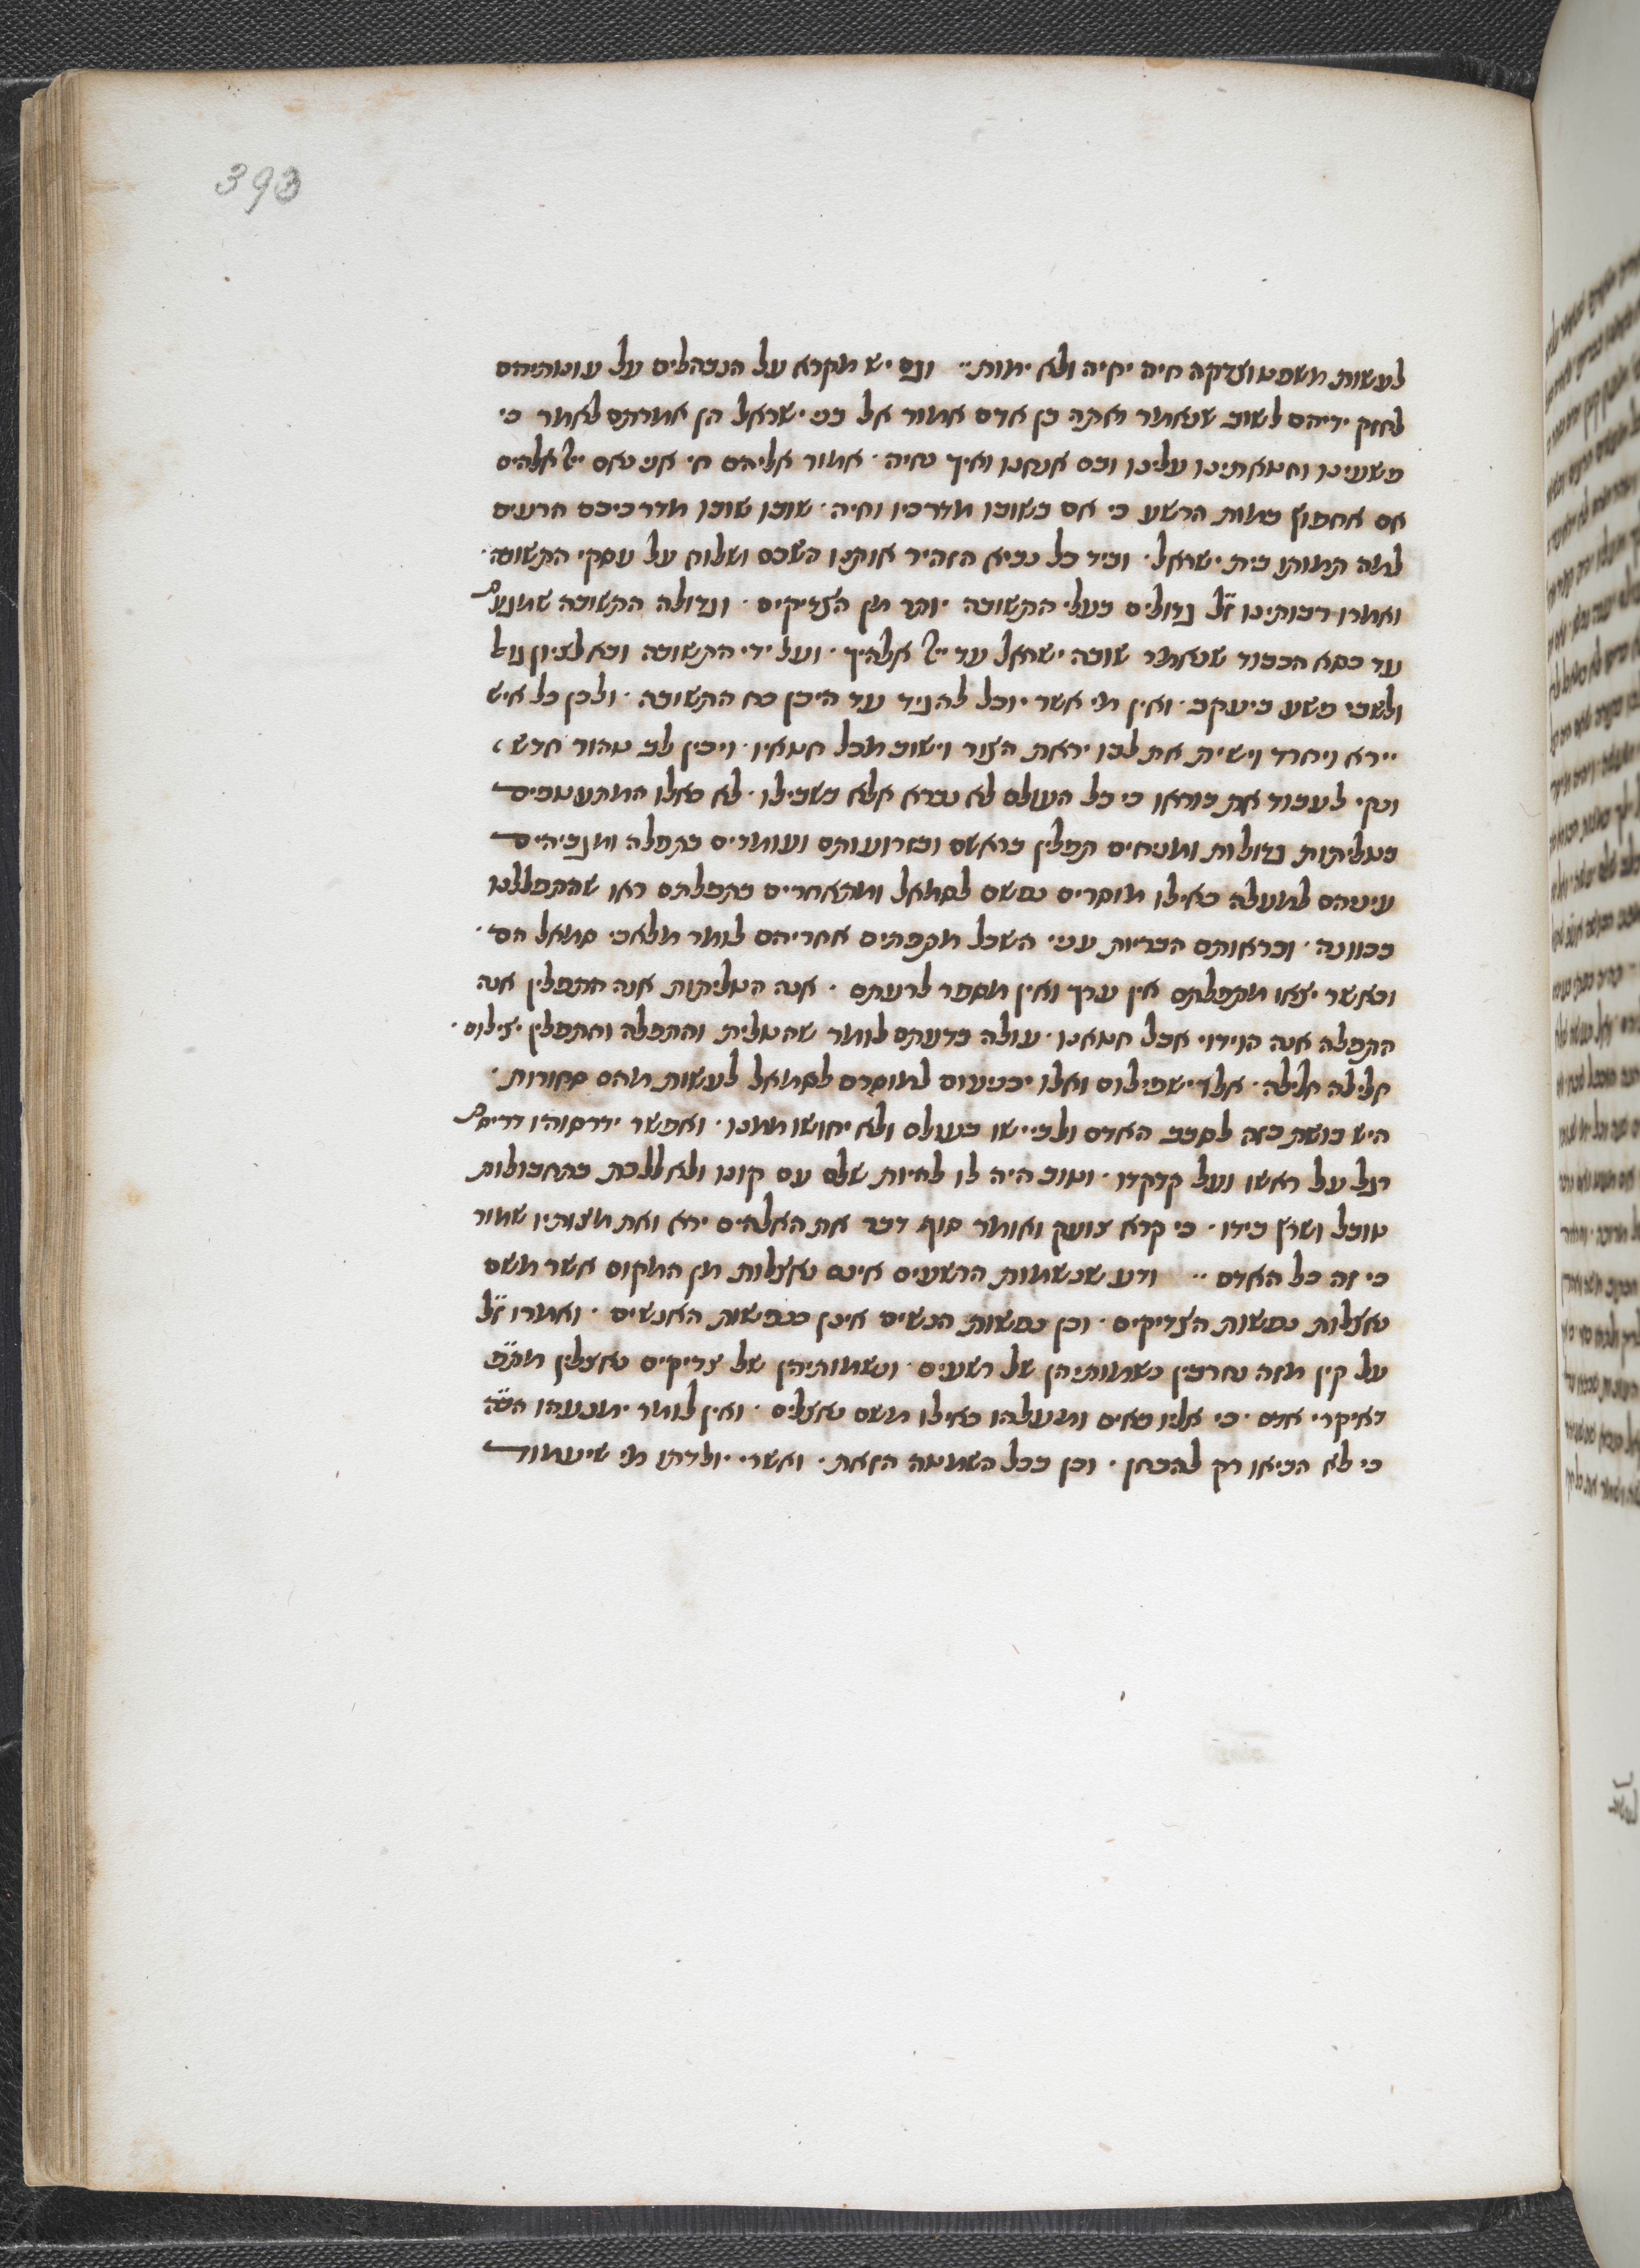 393
לעשות משפט וצדקה חיה יחיה ולא ימות·· וגם יש מקרא על הנבהלים על עונותיהם
לחזק ידיהם לשוב שנאמר ואתה בן אדם אמור אל בני ישראל הן אמרתם לאמר כי
פשעינו וחטאתינו עלינו ובם אנחנו ואיך נחיה· אמור אליהם חי אני נאם ייי אלהים
אם אחפוץ במות הרשע כי אם בשובו מדרכיו וחיה· שובו שובו מדרכיכם הרעים
למה תמותו בית ישראל· וביד כל נביא הזהיר אותנו השכם ושלוח על עסקי התשובה·
ואמרו רבותינו ז"ל גדולים בעלי התשובה יותר מן הצדיקים· וגדולה התשובה שמגעת
עד כסא הכבוד שנאמר שובה ישראל עד ייי אלהיך· ועל ידי התשובה ובא לציון גואל
ולשבי פשע ביעקב· ואין מי אשר יוכל להגיד עד היכן כח התשובה· ולכן כל איש
יירא ויחרד וישית את לבו יראת הצור וישוב מכל חטאיו· ויכין לב טהור חדש
ונקי לעבוד את בוראו כי כל העולם לא נברא אלא בשבילו· לא כאלו המתעטפים
בטליתות גדולות ומניחים תפלין בראשם ובזרועותם ועומדים בתפלה ומגביהים
עיניהם למעלה כאילו מוסרים נפשם לסמאל ומתאחרים בתפלתם ראו שהתפללנו
בכוונה· ובראותם הבריות עניי השכל מקפתים אחריהם לומר מלאכי סמאל הם·
וכאשר יצאו מתפלתם אין ערך ואין מספר לרעתם· אנה הטליתות אנה התפלין אנה
התפלה אנה הוידוי אבל חטאנו· עולה בדעתם לומר שהטלית והתפלה והתפלין יצילום·
חלילה חלילה· אלו ישפילום ואלו יכניעום למוסרם לסמאל לעשות מהם סחורות·
היש בושת כזה לסבב האדם ולביישו בעולם ולא יחושו ממנו· ואפשר ידרסוהו דריסת
רגל על ראשו ועל קדקדו· וטוב היה לו להיות שלם עם קונו ולא ללכת בתחבולות
טובל ושרץ בידו· כי קרא צועק ואומר סוף דבר את האלהים ירא ואת מצותיו שמור
כי זה כל האדם·· ודע שנשמות הרשעים אינם נאצלות מן המקום אשר משם
נאצלות נפשות הצדיקים· וכן נפשות הנשים אינן כנפשות האנשים· ואמרו ז"ל
על קין מזה נחרבין נשמותיהן של רשעים· ונשמותיהן של צדיקים נאצלין
דאיקרי אדם· כי אליו באים ומעלהו כאילו משם נאצלים· ואין לומר ימנעהו
כי לא הביאו רק להבחן· וכן בכל השמטה הזאת· ואשרי יולדתו מי שיעמוד